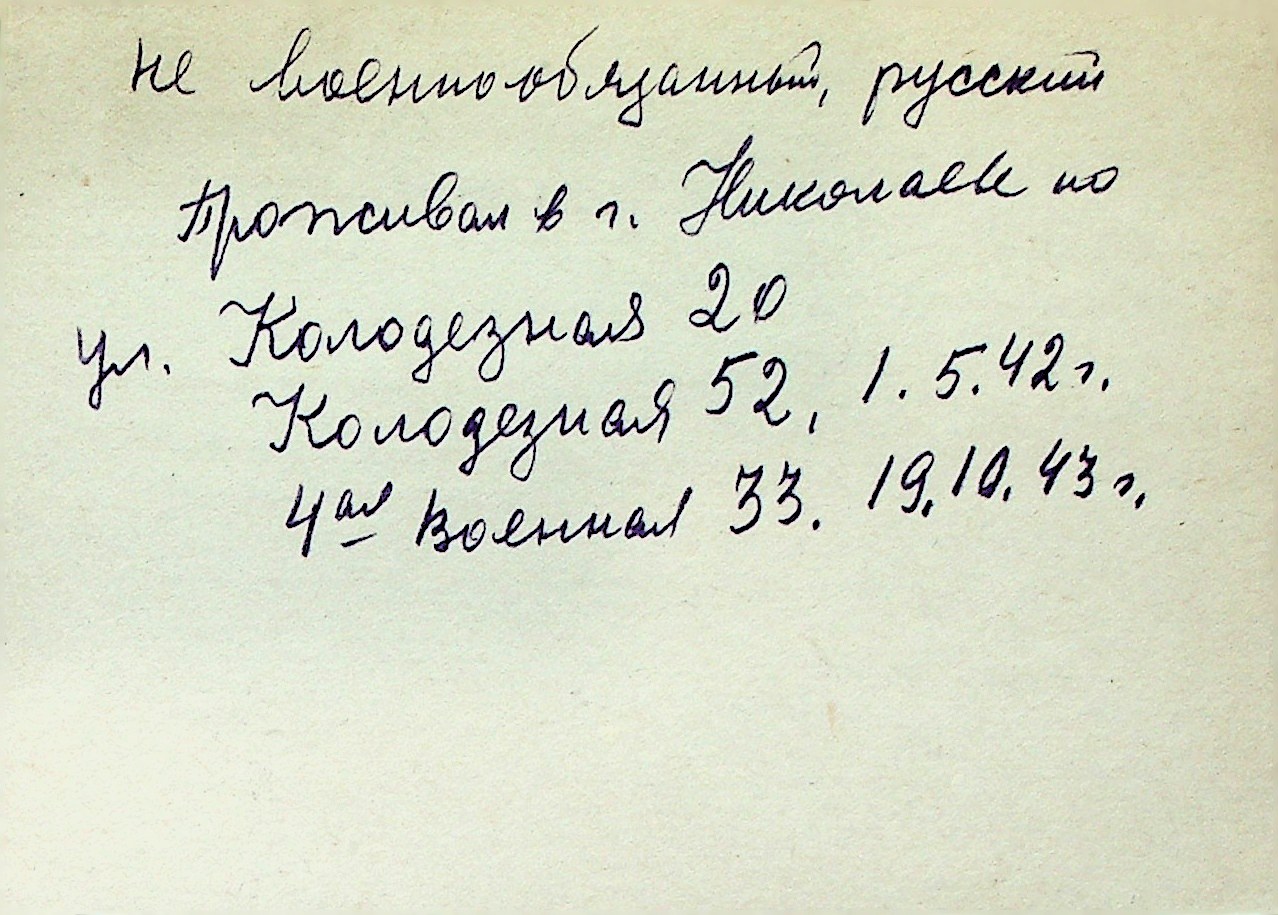 не военнообязанный, русский
Проживал в г. Николаеве по
ул. Колодезная 20
Колодезная 52, 1.5.42 г.
4ая Военная 33. 19.10.43 г.